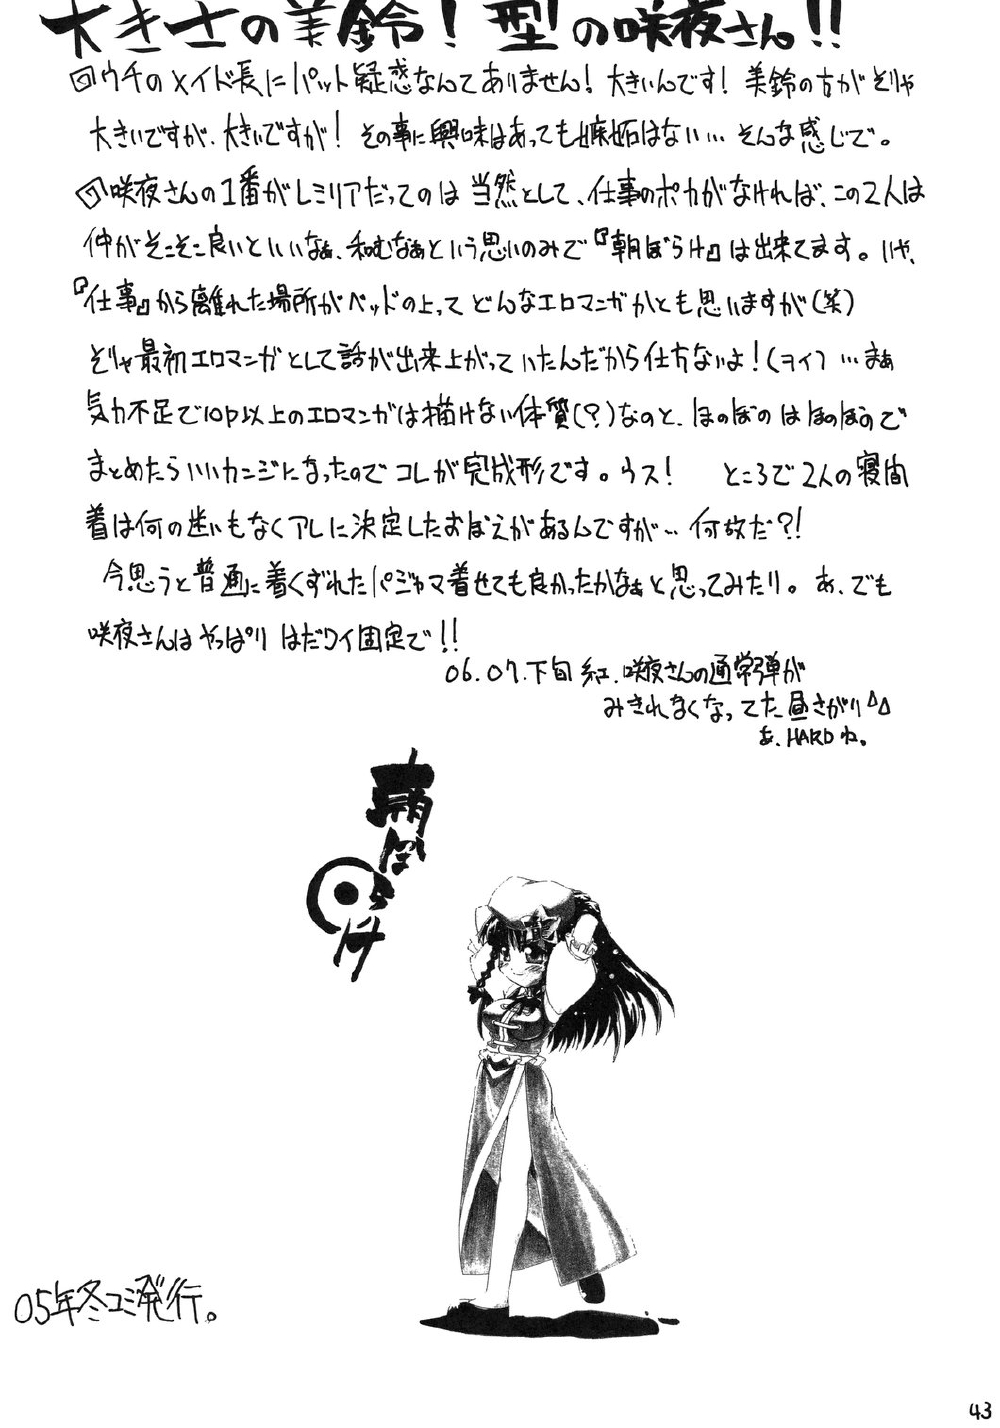 大きさの美鈴!型の咲夜さん!!
ウチのメイド長にパット疑惑なんてありません!大きいんです!美鈴の方がそりゃ
大きいですが、大きいですが!その事に興味はあっても嫉妬はない…そんな感じで。
咲夜さんの1番がレミリアだってのは当然として、仕事のポカがなければ、この2人は
仲がそこそこ良いといいなぁ、和むなぁという思いのみで『朝ぼらけ』は出来てます。いや、
『仕事』から離れた場所がベッドの上ってどんなエロマンガかとも思いますが(笑)
そりゃ最初エロマンガとして話が出来上がっていたんだから仕方ないよ!(ヲイ)…まぁ
気力不足で10P以上のエロマンガは描けない体質(?)なのと、ほのぼのはほのぼので
まとめたらいいカンジになったのでコレが完成形です。ウス! ところで2人の寝間
着は何の迷いもなくアレに決定したおぼえがあるんですが…何故だ?!
今思うと普通に着くずれたパジャマ着せても良かったかなぁと思ってみたり。あ、でも
咲夜さんはやっぱりはだワイ固定で!!
06.07.下旬 紅.咲夜さんの通常弾が
みきれなくなってた昼さがり
あ、HARDね。
朝ぼらけ
05年冬コミ発行。
43